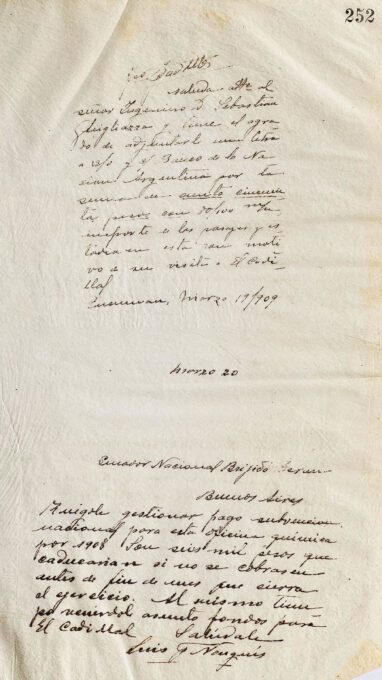 252
saluda atte al
señor Ingeniero D. Sebastian
y tiene el agra
do de adjuntarle una letra
a s/o y el Banco de la Na
cion Argentina por la
suma de ciento cincuen
ta pesos con 70/100 m/n
importe de los pasajes y es
tadia en esta con moti
vo de su visita a El Cadi
llal
Tucuman, Marzo 19/909
Marzo 20
Senador Nacional Brijido Teran
Buenos Aires
Ruegole gestionar pago subvencion
nacional para esta oficina quimica
por 1908 Son seis mil pesos que
caducarian si no se cobrasen
antes de fin de mes que cierra
el ejercicio. Al mismo tiem
po recuerdole asunto fondos para
El Cadillal Saludale
Luis F Nougués